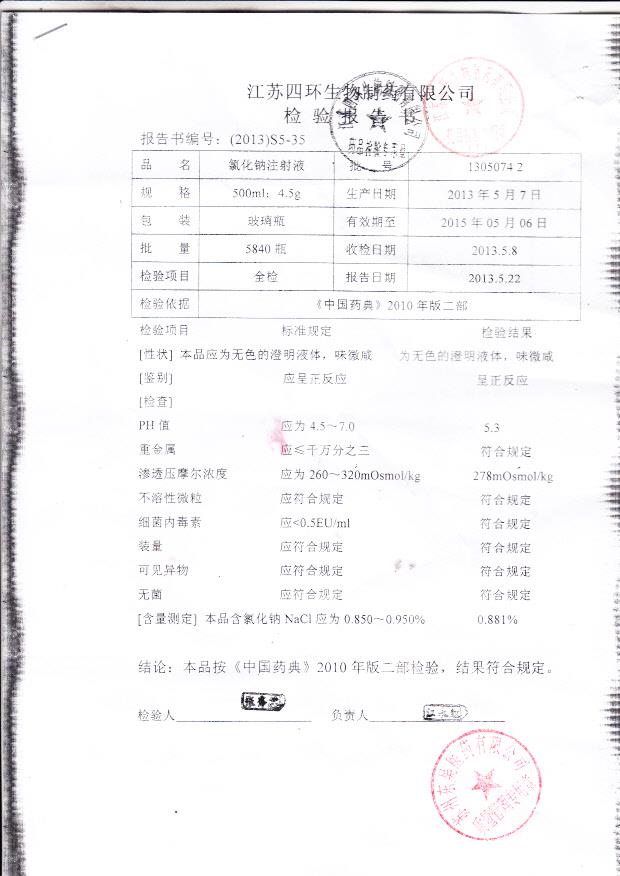 江苏四环生物制药有限公司
检 验 报 告 书
报告书编号：(2013)S5-35
品 名 氯化钠注射液 批 号 1305074 2
规 格 500ml：4.5g 生产日期 2013 年 5 月 7 日
包 装 玻璃瓶 有效期至 2015 年 05 月 06 日
批 量 5840 瓶 收检日期 2013.5.8
检验项目 全检 报告日期 2013.5.22
检验依据 《中国药典》2010 年版二部
检验项目 标准规定 检验结果
[性状] 本品应为无色的澄明液体，味微咸 为无色的澄明液体，味微咸
[鉴别] 应呈正反应 呈正反应
[检查]
PH 值 应为 4.5～7.0 5.3
重金属 应≤千万分之三 符合规定
渗透压摩尔浓度 应为 260～320mOsmol/kg 278mOsmol/kg
不溶性微粒 应符合规定 符合规定
细菌内毒素 应<0.5EU/ml 符合规定
装量 应符合规定 符合规定
可见异物 应符合规定 符合规定
无菌 应符合规定 符合规定
[含量测定] 本品含氯化钠 NaCl 应为 0.850～0.950% 0.881%
结论：本品按《中国药典》2010 年版二部检验，结果符合规定。
检验人 负责人
药品检验专用章